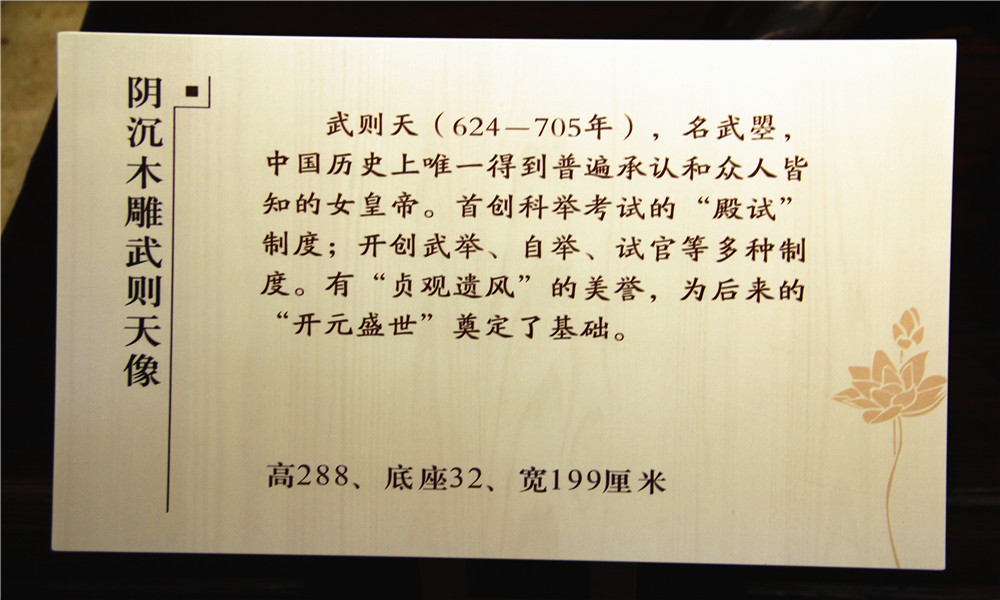 阴沉木雕武则天像
武则天（624—705年），名武曌，
中国历史上唯一得到普遍承认和众人皆
知的女皇帝。首创科举考试的“殿试”
制度；开创武举、自举、试官等多种制
度。有“贞观遗风”的美誉，为后来的
“开元盛世”奠定了基础。
高288、底座32、宽199厘米